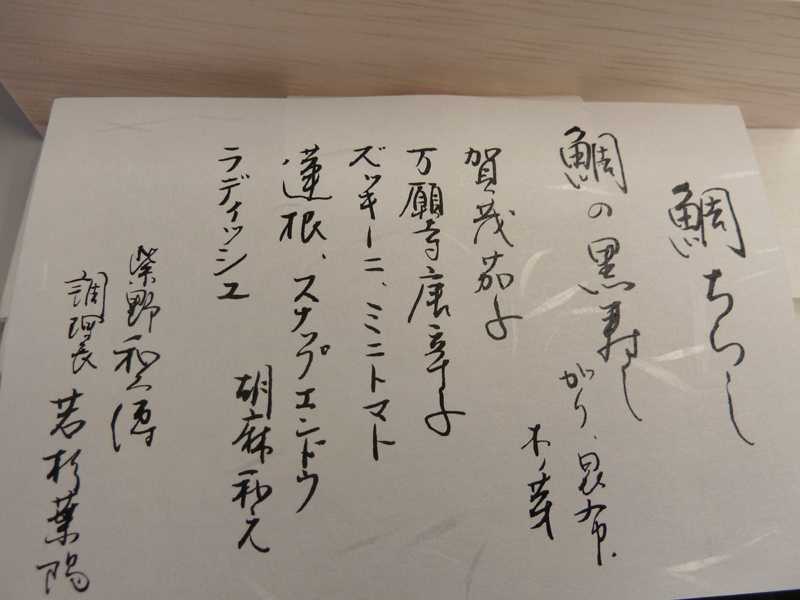 鯛ちらし
鯛の黒寿し
がり、昆布、
木ノ芽
賀茂茄子
万願寺唐辛子
ズッキーニ、ミニトマト
蓮根、スナップエンドウ
ラディッシュ
胡麻和え
紫野和久傳
調理長 若杉葉陽